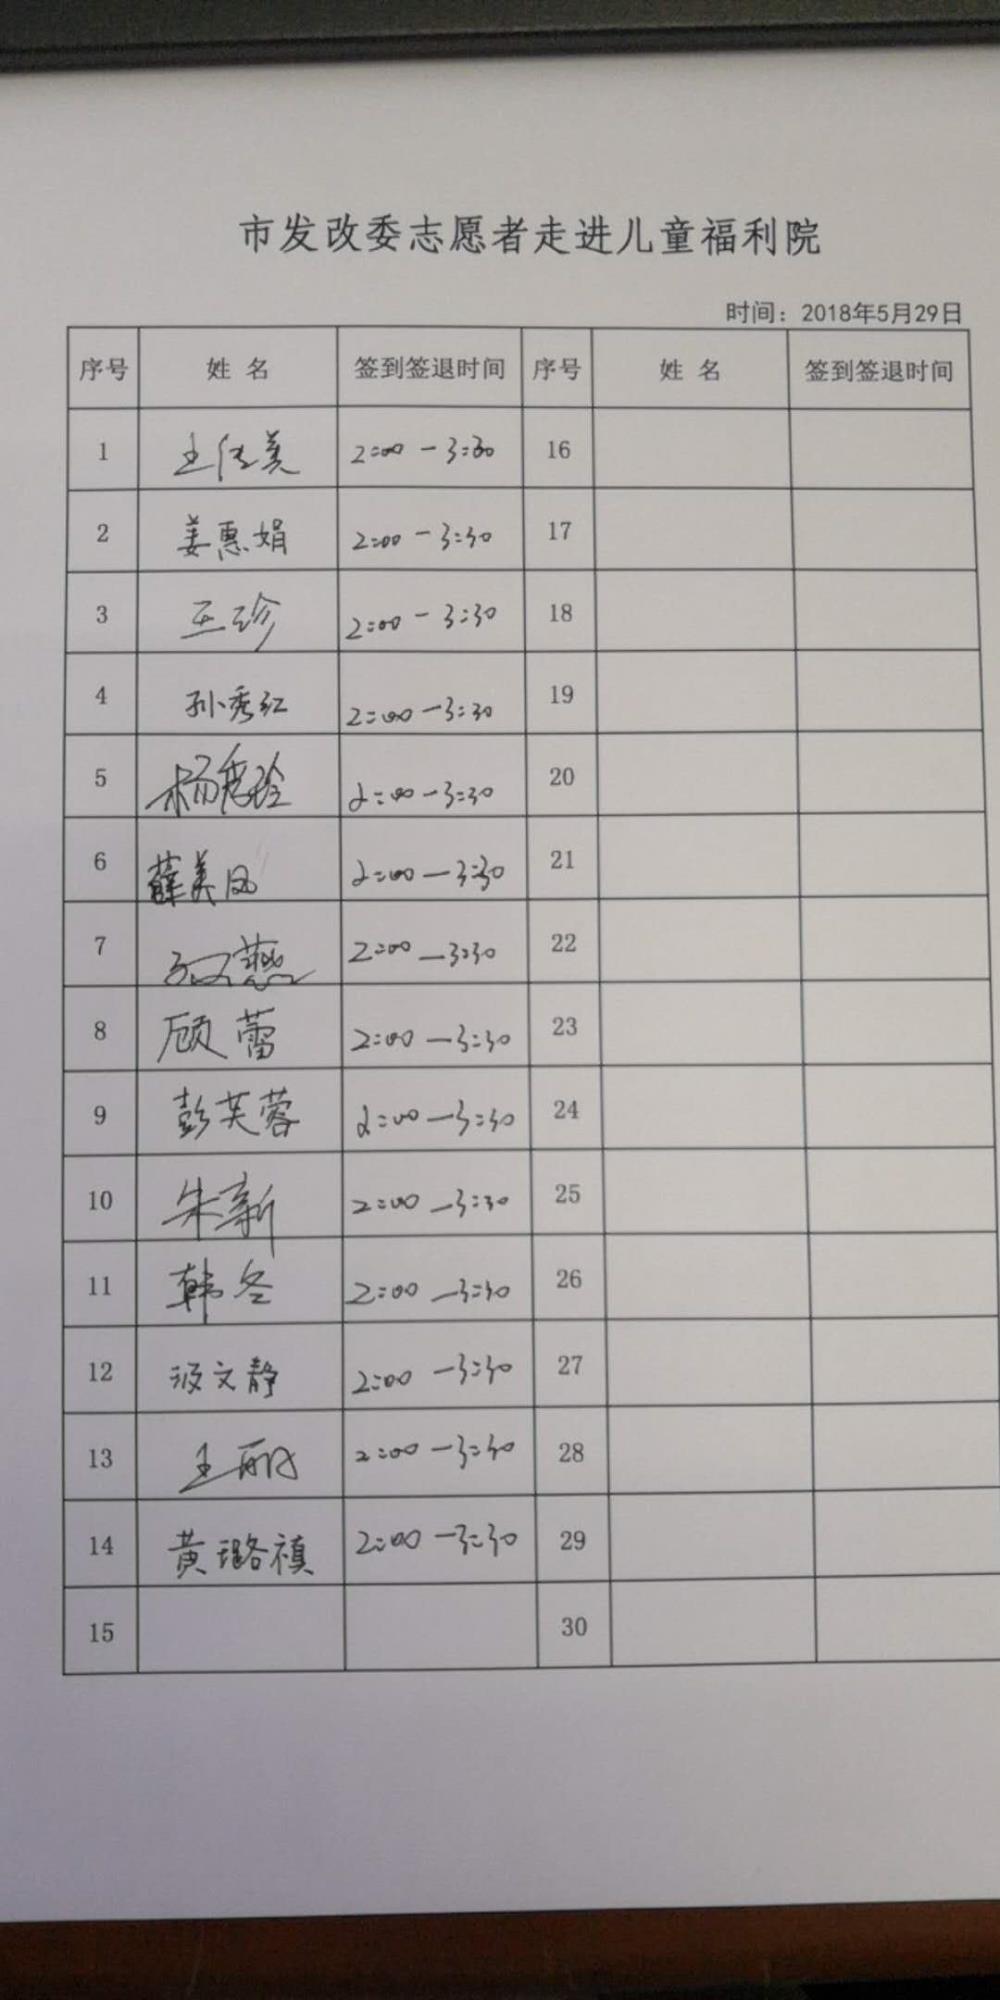 市发改委志愿者走进儿童福利院
时间：2018年5月29日
序号 姓 名 签到签退时间 序号 姓 名 签到签退时间
1 王传美 2:00-3:30 16
2 姜惠娟 2:00-3:30 17
3 王珍 2:00-3:30 18
4 孙秀红 2:00-3:30 19
5 杨 2:00-3:30 20
6 薛美凤 2:00-3:30 21
7 燕 2:00-3:30 22
8 顾蕾 2:00-3:30 23
9 彭芙蓉 2:00-3:30 24
10 朱新 2:00-3:30 25
11 韩冬 2:00-3:30 26
12 文静 2:00-3:30 27
13 王丽 2:00-3:30 28
14 黄璐禛 2:00-3:30 29
15 30